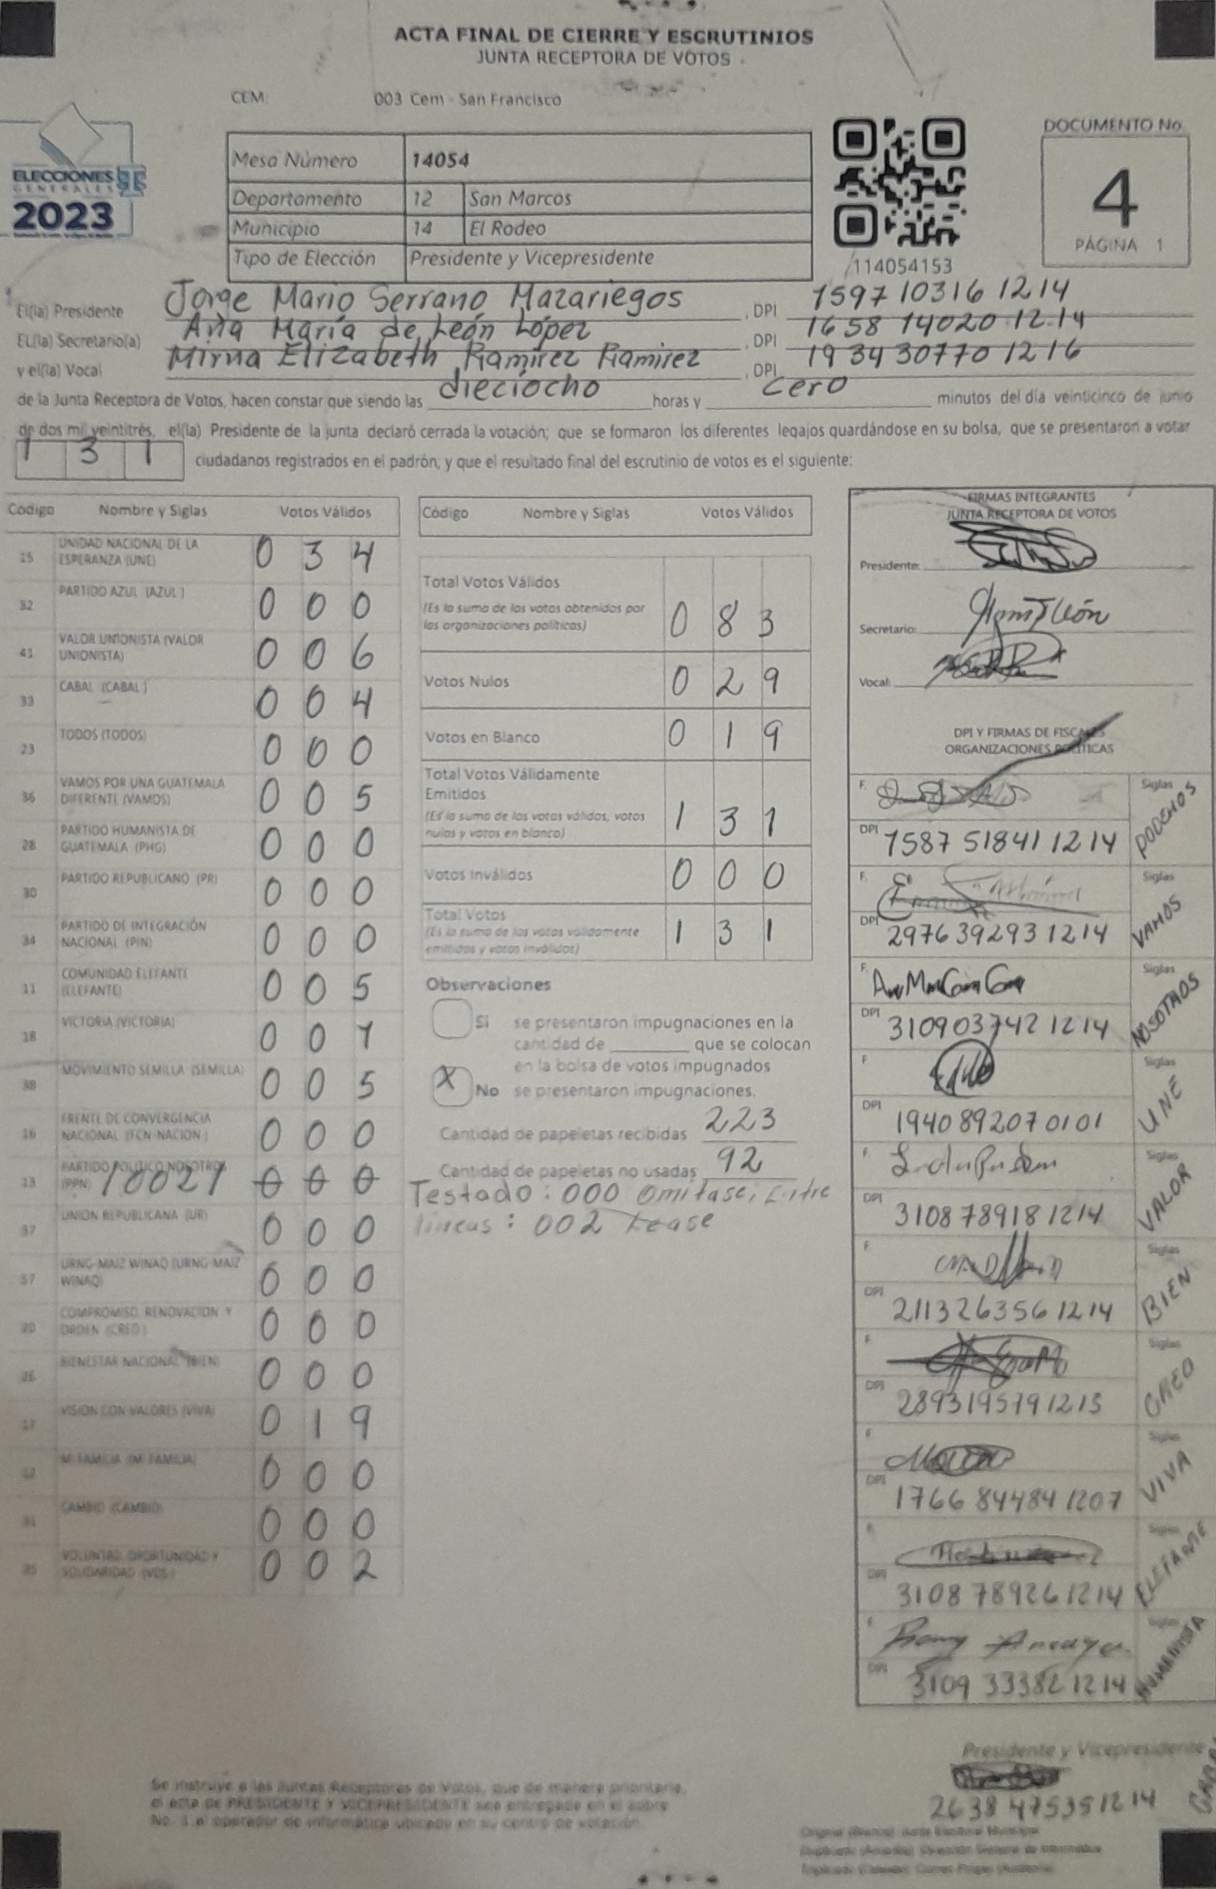 ACTA FINAL DE CIERRE Y ESCRUTINIOS
JUNTA RECEPTORA DE VOTOS
CEM: 003 Cem - San Francisco
ELECCIONES
GENERALES
2023
Mesa Número 14054
Departamento 12 San Marcos
Municipio 14 El Rodeo
Tipo de Elección Presidente y Vicepresidente
114054153
DOCUMENTO No.
4
PÁGINA 1
El(la) Presidente Jorge Mario Serrano Mazariegos, DPI 1597 10316 1214
El(la) Secretario(a) Ana María de León López, DPI 1658 14020 1214
y el(la) Vocal Mirna Elizabeth Ramírez Ramirez, DPI 1934 30770 1216
de la Junta Receptora de Votos, hacen constar que siendo las dieciocho horas y cero minutos del día veinticinco de junio
de dos mil veintitrés, el(la) Presidente de la junta declaró cerrada la votación; que se formaron los diferentes legajos guardándose en su bolsa, que se presentaron a votar
131 ciudadanos registrados en el padrón; y que el resultado final del escrutinio de votos es el siguiente:
Código Nombre y Siglas Votos Válidos
15 UNIDAD NACIONAL DE LA ESPERANZA (UNE) 0 3 4
32 PARTIDO AZUL (AZUL) 0 0 0
41 VALOR UNIONISTA (VALOR UNIONISTA) 0 0 6
33 CABAL (CABAL) 0 0 4
23 TODOS (TODOS) 0 0 0
36 VAMOS POR UNA GUATEMALA DIFERENTE (VAMOS) 0 0 5
28 PARTIDO HUMANISTA DE GUATEMALA (PHG) 0 0 0
30 PARTIDO REPUBLICANO (PR) 0 0 0
34 PARTIDO DE INTEGRACIÓN NACIONAL (PIN) 0 0 0
11 COMUNIDAD ELEFANTE (ELEFANTE) 0 0 5
18 VICTORIA (VICTORIA) 0 0 1
38 MOVIMIENTO SEMILLA (SEMILLA) 0 0 5
16 FRENTE DE CONVERGENCIA NACIONAL (FCN-NACION) 0 0 0
13 PARTIDO POLÍTICO NOSOTROS (PPN) /002/ 0 0 0
37 UNION REPUBLICANA (UR) 0 0 0
57 URNG-MAIZ WINAQ (URNG-MAIZ WINAQ) 0 0 0
20 COMPROMISO, RENOVACION Y ORDEN (CREO) 0 0 0
26 BIENESTAR NACIONAL (BIEN) 0 0 0
17 VISION CON VALORES (VIVA) 0 1 9
MI FAMILIA (MI FAMILIA) 0 0 0
CAMBIO (CAMBIO) 0 0 0
VOLUNTAD, OPORTUNIDAD Y SOLIDARIDAD (VOS) 0 0 2
Código Nombre y Siglas Votos Válidos
Total Votos Válidos 0 8 3
(Es la suma de los votos obtenidos por
las organizaciones políticas)
Votos Nulos 0 2 9
Votos en Blanco 0 1 9
Total Votos Válidamente
Emitidos 1 3 1
(Es la suma de los votos válidos, votos
nulos y votos en blanco)
Votos Inválidos 0 0 0
Total Votos 1 3 1
(Es la suma de los votos válidamente
emitidos y votos inválidos)
Observaciones
Si se presentaron impugnaciones en la
cantidad de ________ que se colocan
en la bolsa de votos impugnados
X No se presentaron impugnaciones.
Cantidad de papeletas recibidas 223
Cantidad de papeletas no usadas 92
Testado: 000 Omitase; Entre
lineas: 002 Lease
FIRMAS INTEGRANTES
JUNTA RECEPTORA DE VOTOS
Presidente:
Secretario:
Vocal:
DPI Y FIRMAS DE FISCALES
ORGANIZACIONES POLÍTICAS
F. Siglas PODEMOS
DPI 1587 51841 1214
F. Siglas VAMOS
DPI 2976 39293 1214
F. Siglas NOSOTROS
DPI 3109 03742 1214
F. Siglas UNE
DPI 1940 89207 0101
F. Siglas VALOR
DPI 3108 78918 1214
F. Siglas BIEN
DPI 2113 26356 1214
F. Siglas CREO
DPI 2893 19579 1213
F. Siglas VIVA
DPI 1766 84484 1207
F. Siglas ELEFANTE
DPI 3108 78926 1214
F. Siglas HUMANISTA
DPI 3109 33382 1214
Presidente y Vicepresidente
2638 47535 1214
Se instruye a las Juntas Receptoras de Votos, que de manera prioritaria,
el acta de PRESIDENTE Y VICEPRESIDENTE sea entregada en el sobre
No. 1 al operador de informática ubicado en su centro de votación.